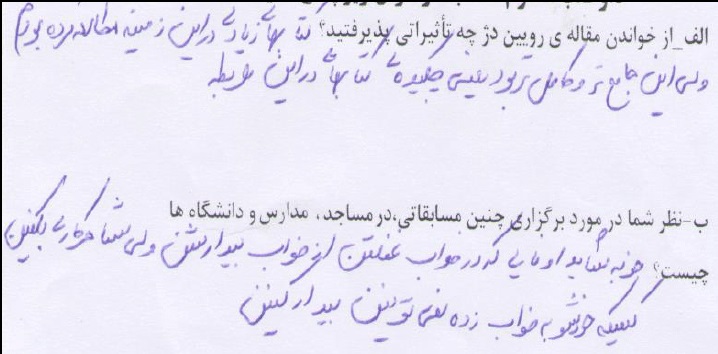 الف_از خواندن مقاله ی رویین دژ چه تأثیراتی پذیرفتید؟ کتابهای زیادی در این زمینه مطالعه کرده بودم
ولی این جامع تر و کاملتر بود یعنی چکیده ی کتابهای در این رابطه
ب-نظر شما در مورد برگزاری چنین مسابقاتی،در مساجد، مدارس و دانشگاه ها
چیست؟ خوبه شاید اونایی که در خواب غفلتن از خواب بیدار شن ولی شما هر کاری بکنین
کسیکه خودشو به خواب زده نمی تونین بیدار کنین